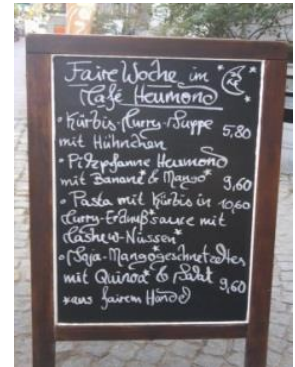 Faire Woche im
Café Heumond
• Kürbis-Curry-Suppe 5,80
mit Hühnchen
• Pilzpfanne Heumond
mit Banane* & Mango* 9,60
• Pasta mit Kürbis in 10,60
Curry-Erdnuß*sauce mit
Cashew-Nüssen*
• Soja-Mangogeschnetzeltes
mit Quinoa* & Salat 9,60
*aus fairem Handel